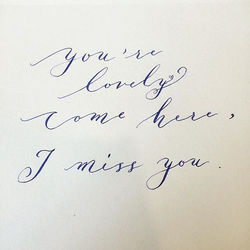 you're
lovely
come here,
I miss you.